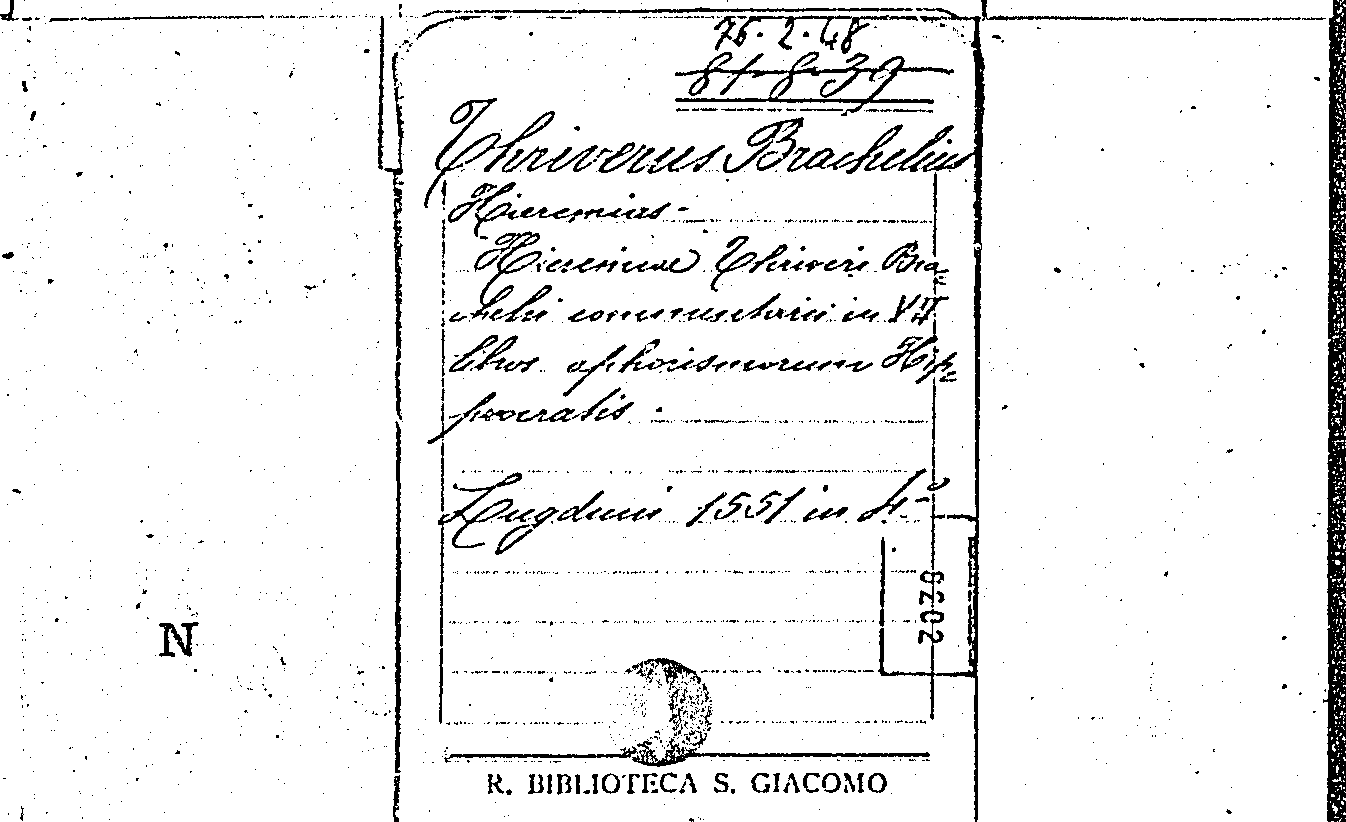 76.2.48
81-8-39
Thriverus Brachelius
Hieremias -
Hieremiae Thriveri Bra=
chelii commentarii in VII
libros aphorismorum Hip=
pocratis .
Lugduni 1551 in 4º
6202
N
R. BIBLIOTECA S. GIACOMO